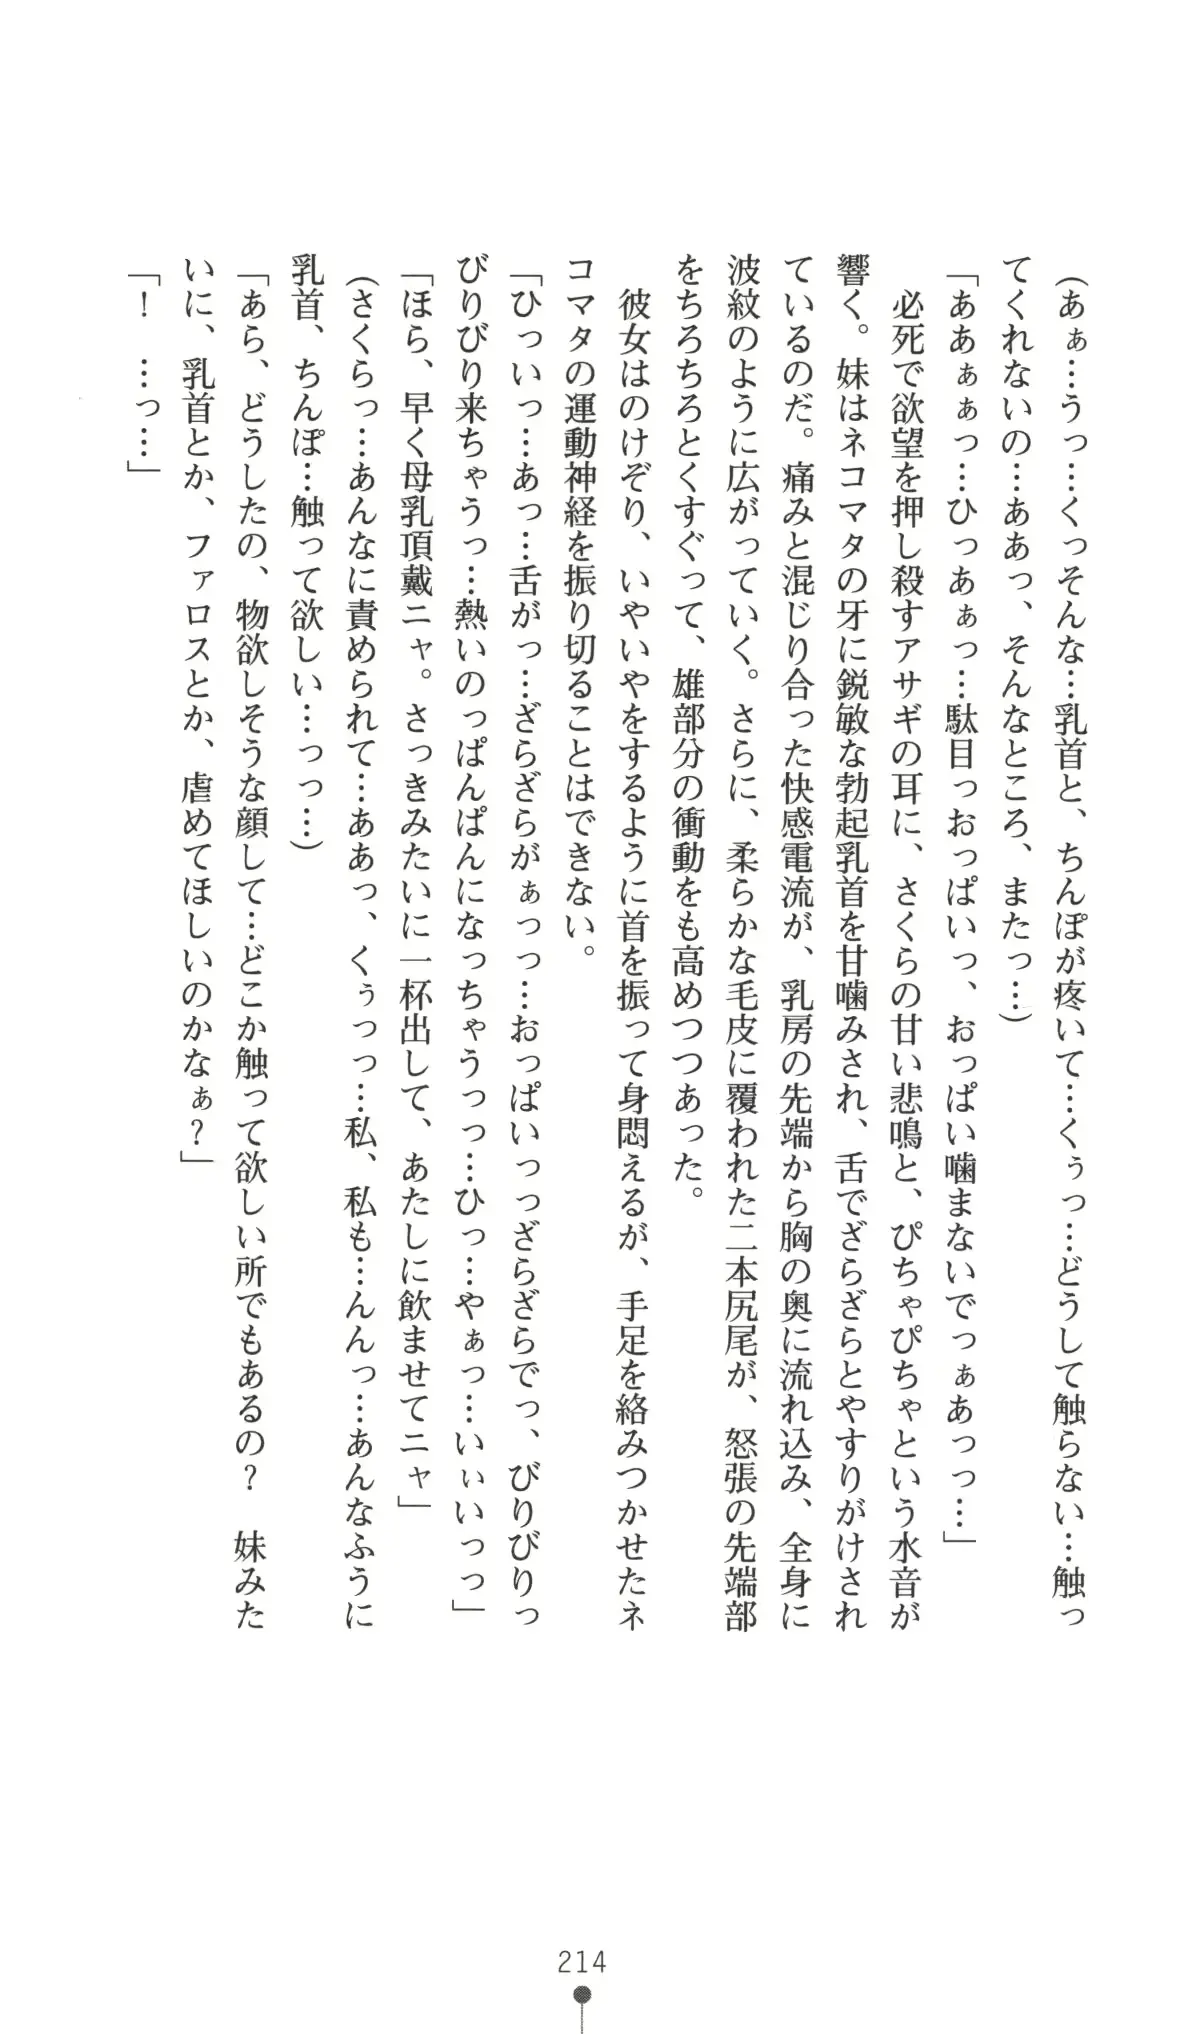 (あぁ…うっ…くっそんな…乳首と、ちんぽが疼いて…くぅっ…どうして触らない…触っ
てくれないの…ああっ、そんなところ、またっ…)
「ああぁぁっ…ひっあぁっ…駄目っおっぱいっ、おっぱい噛まないでっぁあっっ…」
　必死で欲望を押し殺すアサギの耳に、さくらの甘い悲鳴と、ぴちゃぴちゃという水音が
響く。妹はネコマタの牙に鋭敏な勃起乳首を甘噛みされ、舌でざらざらとやすりがけされ
ているのだ。痛みと混じり合った快感電流が、乳房の先端から胸の奥に流れ込み、全身に
波紋のように広がっていく。さらに、柔らかな毛皮に覆われた二本尻尾が、怒張の先端部
をちろちろとくすぐって、雄部分の衝動をも高めつつあった。
　彼女はのけぞり、いやいやをするように首を振って身悶えるが、手足を絡みつかせたネ
コマタの運動神経を振り切ることはできない。
「ひっいっ…あっ…舌がっ…ざらざらがぁっっ…おっぱいっっざらざらでっ、びりびりっ
びりびり来ちゃうっ…熱いのっぱんぱんになっちゃうっっ…ひっ…やぁっ…いぃいっっ」
「ほら、早く母乳頂戴ニャ。さっきみたいに一杯出して、あたしに飲ませてニャ」
(さくらっ…あんなに責められて…ああっ、くぅっっ…私、私も…んんっ…あんなふうに
乳首、ちんぽ…触って欲しい…っっ…)
「あら、どうしたの、物欲しそうな顔して…どこか触って欲しい所でもあるの？　妹みた
いに、乳首とか、ファロスとか、虐めてほしいのかなぁ？」
「！　…っ…」
214